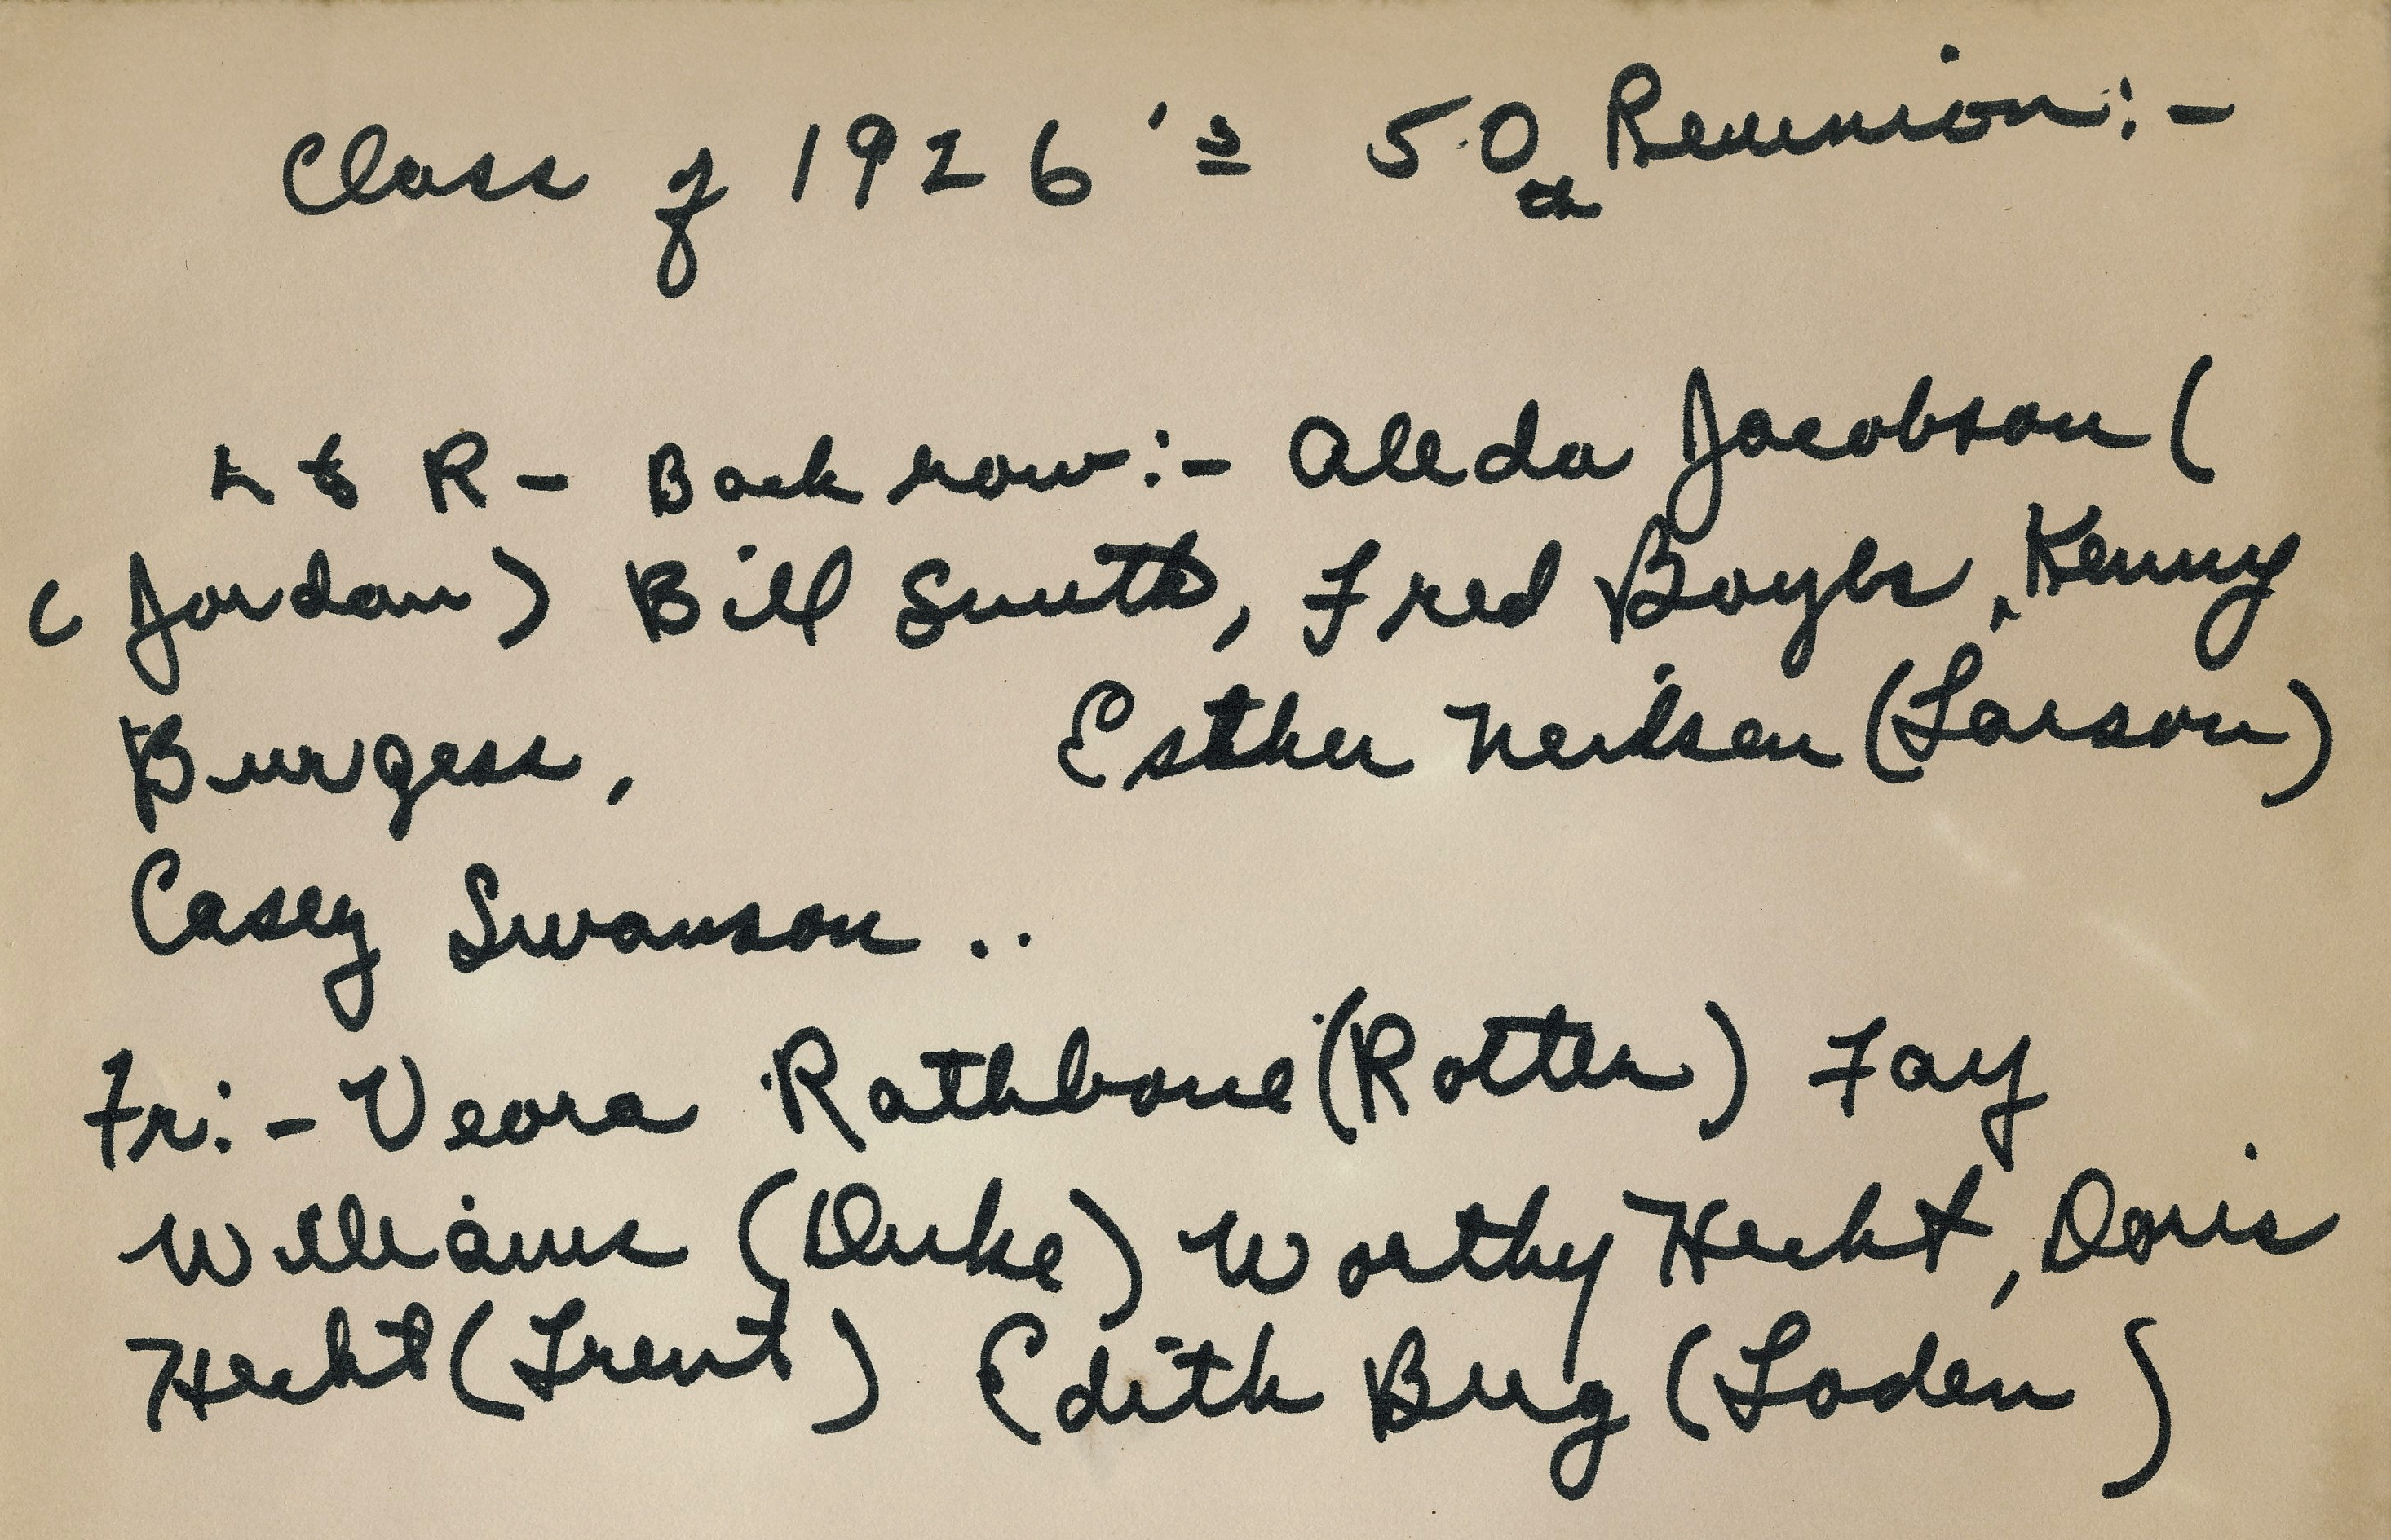 Class of 1926's 50th Reunion:-
L to R - Back row:- Aleda Jacobson (
(Jordan) Bill Smith, Fred Boyles, Kenny
Burgess, Esther Neilsen (Larson)
Casey Swanson ..
Fr:- Veora Rathbone (Rotter) Fay
Williams (Duke) Worthy Hecht, Doris
Hecht (Trent) Edith Berg (Loden)